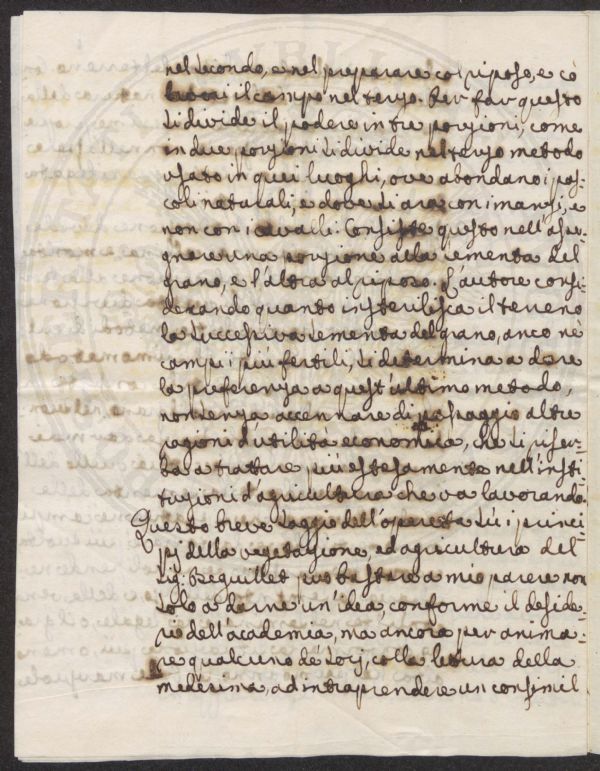 nel secondo, e nel preparare col riposo, e cō
lavori il campo nel terzo. Per far questo
si divide il podere in tre porzioni, come
in due porzioni si divide nel terzo metodo
usato in quei luoghi, ove abondano i pas-
coli naturali, e dove si ara con i manzi, e
non con i cavalli. Consiste questo nell'asse-
gnare una porzione alla sementa del
grano, e l'altra al riposo. L'autore consi-
derando quanto insterilisca il terreno
la successiva sementa del grano, anco nè
campi i più fertili, si determina a dare
la preferenza a quest'ultimo metodo,
non senza accennare di passaggio altre
ragioni d'utilità economica, che si riser-
ba a trattare più estesamente nell'insti-
tuzioni d'agricultura che va lavorando.
Questo breve saggio dell'operetta sù i princi-
pj della vegetazione, ed agricultura del
Sig. Beguillet può bastare a mio parere non
solo a darne un'idea, conforme il deside-
rio dell'academia, ma ancora per anima-
re qualcuno dé Socj, colla lettura della
medesima, ad intraprendere un consimil